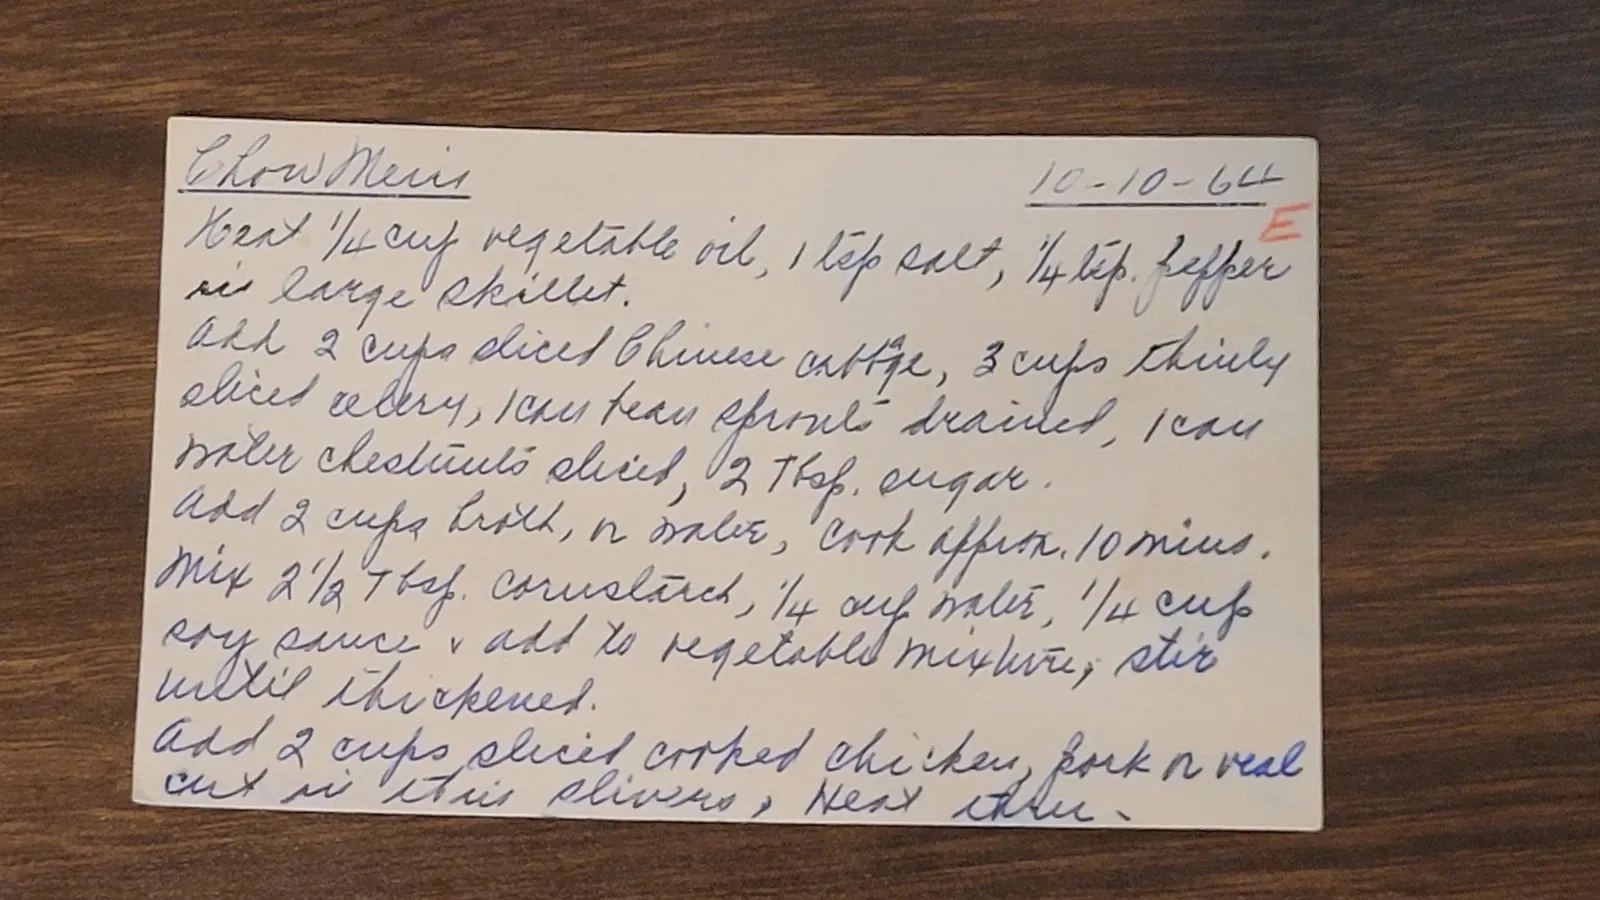 Chow Mein 10-10-64
E
Heat 1/4 cup vegetable oil, 1 tsp salt, 1/4 tsp. pepper
in large skillet.
Add 2 cups sliced Chinese cabbage, 3 cups thinly
sliced celery, 1 can bean sprouts drained, 1 can
water chestnuts sliced, 2 Tbsp. sugar.
Add 2 cups broth, or water, cook approx. 10 mins.
Mix 2 1/2 Tbsp. cornstarch, 1/4 cup water, 1/4 cup
soy sauce & add to vegetable mixture, stir
until thickened.
Add 2 cups sliced cooked chicken, pork or veal
cut in thin slivers, Heat thru.